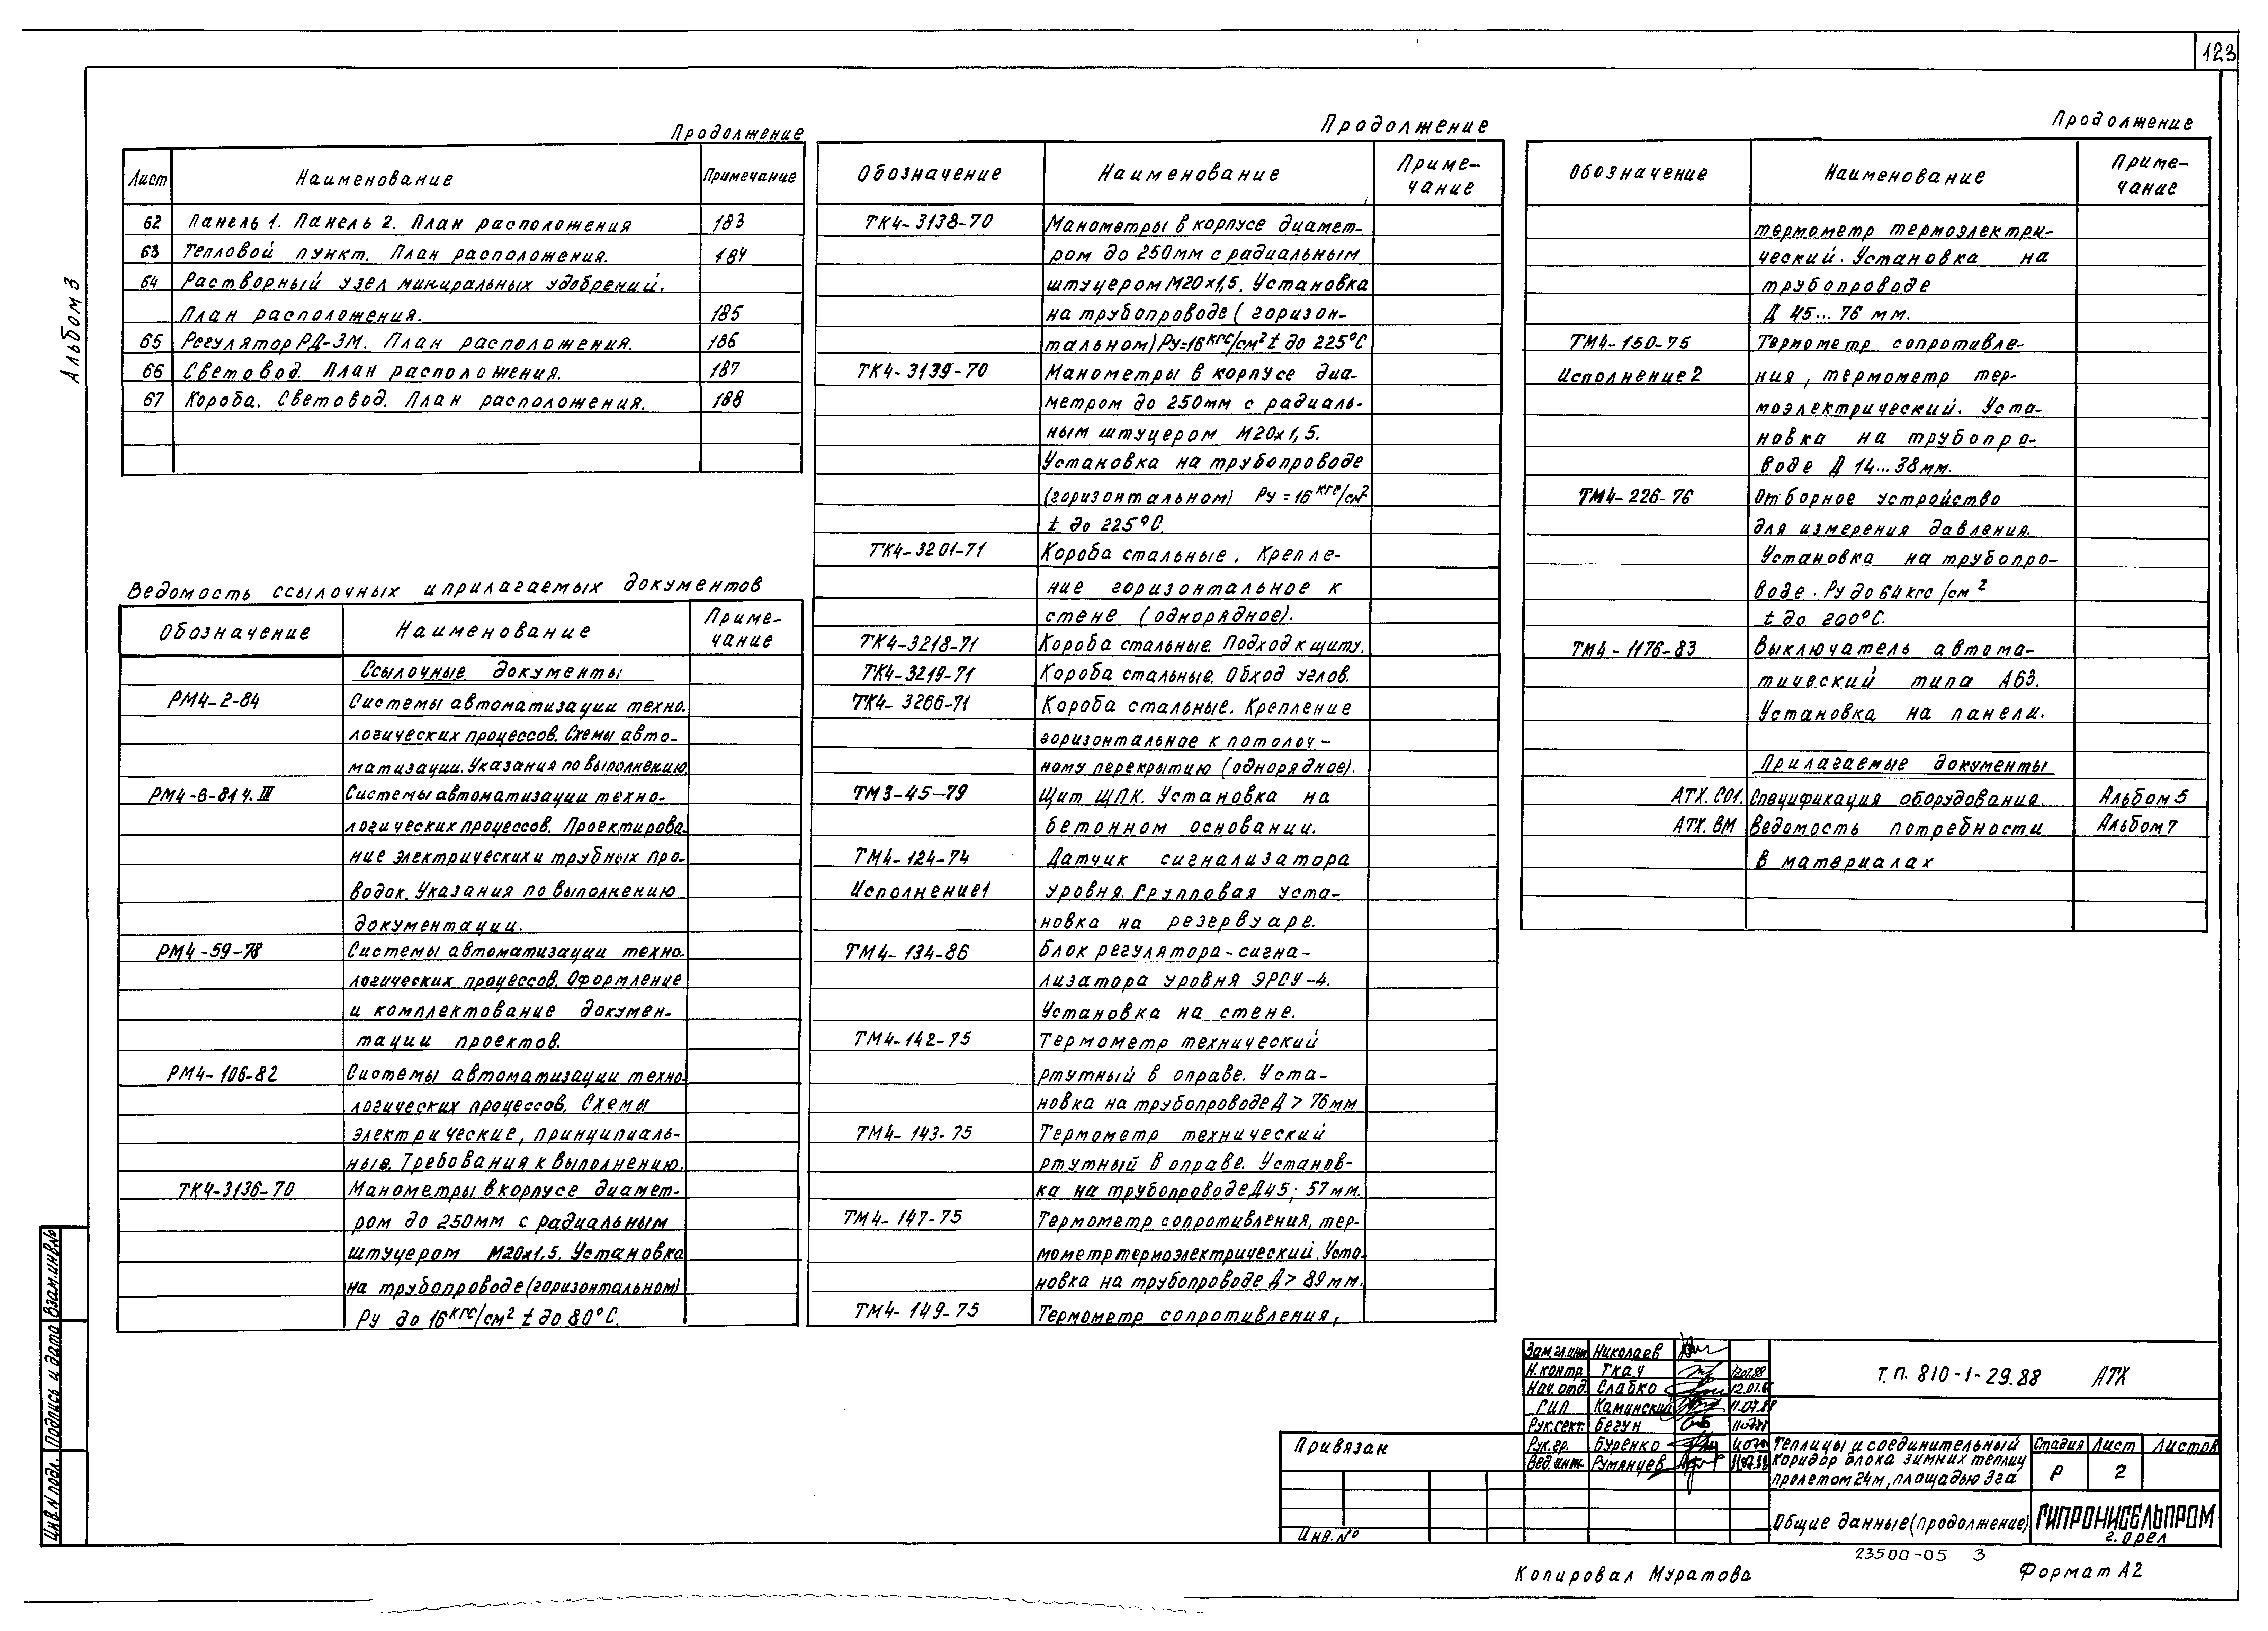 123
Альбом 3
Продолжение
Лист Наименование Примечание
62 Панель 1. Панель 2. План расположения 183
63 Тепловой пункт. План расположения. 184
64 Растворный узел миниральных удобрений.
План расположения. 185
65 Регулятор РД-3М. План расположения. 186
66 Световод. План расположения. 187
67 Короба. Световод. План расположения. 188
Ведомость ссылочных и прилагаемых документов
Обозначение Наименование Приме-
чание
Ссылочные документы
РМ4-2-84 Системы автоматизации техно-
логических процессов. Схемы авто-
матизации. Указания по выполнению.
РМ4-6-81 ч. III Системы автоматизации техно-
логических процессов. Проектирова-
ние электрических и трубных про-
водок. Указания по выполнению
документации.
РМ4-59-78 Системы автоматизации техно-
логических процессов. Оформление
и комплектование докумен-
тации проектов.
РМ4-106-82 Системы автоматизации техно-
логических процессов. Схемы
электрические, принципиаль-
ные. Требования к выполнению.
ТК4-3136-70 Манометры в корпусе диамет-
ром до 250мм с радиальным
штуцером М20х1,5. Установка
на трубопроводе (горизонтальном)
Ру до 16 кгс/см² t до 80°С.
Продолжение
Обозначение Наименование Приме-
чание
ТК4-3138-70 Манометры в корпусе диамет-
ром до 250мм с радиальным
штуцером М20х1,5. Установка
на трубопроводе (горизон-
тальном) Ру=16 кгс/см² t до 225°С
ТК4-3139-70 Манометры в корпусе диа-
метром до 250мм с радиаль-
ным штуцером М20х1,5.
Установка на трубопроводе
(горизонтальном) Ру=16 кгс/см²
t до 225°С.
ТК4-3201-71 Короба стальные. Крепле-
ние горизонтальное к
стене (однорядное).
ТК4-3218-71 Короба стальные. Подход к щиту.
ТК4-3219-71 Короба стальные. Обход углов.
ТК4-3266-71 Короба стальные. Крепление
горизонтальное к потолоч-
ному перекрытию (однорядное).
ТМ3-45-79 Щит ЩПК. Установка на
бетонном основании.
ТМ4-124-74 Датчик сигнализатора
Исполнение1 уровня. Групповая уста-
новка на резервуаре.
ТМ4-134-86 Блок регулятора-сигна-
лизатора уровня ЭРСУ-4.
Установка на стене.
ТМ4-142-75 Термометр технический
ртутный в оправе. Уста-
новка на трубопроводе Д > 76мм
ТМ4-143-75 Термометр технический
ртутный в оправе. Установ-
ка на трубопроводе Д45; 57мм.
ТМ4-147-75 Термометр сопротивления, тер-
мометр термоэлектрический. Уста-
новка на трубопроводе Д > 89мм.
ТМ4-149-75 Термометр сопротивления,
Продолжение
Обозначение Наименование Приме-
чание
термометр термоэлектри-
ческий. Установка на
трубопроводе
Д 45...76 мм.
ТМ4-150-75 Термометр сопротивле-
Исполнение 2 ния, термометр тер-
моэлектрический. Уста-
новка на трубопро-
воде Д 14...38мм.
ТМ4-226-76 Отборное устройство
для измерения давления.
Установка на трубопро-
воде. Ру до 64 кгс/см²
t до 200°С.
ТМ4-1176-83 Выключатель автома-
тический типа А63.
Установка на панели.
Прилагаемые документы
АТХ.СО1. Спецификация оборудования. Альбом 5
АТХ.ВМ Ведомость потребности Альбом 7
в материалах
Инв.N подл. Подпись и дата Взам.инв.№
Зам.гл.инж Николаев
Н.контр. Ткач 12.07.88
Нач.отд. Слабко 12.07.88
ГИП Каминский 11.07.88
Рук.сект. Бегун
Рук.гр. Буренко
Вед.инж. Румянцев
Т.П. 810-1-29.88 АТХ
Привязан
Инв.№
Теплицы и соединительный
коридор блока зимних теплиц
пролетом 24м, площадью 3га
Стадия Лист Листов
Р 2
Общие данные (продолжение)
ГИПРОНИСЕЛЬПРОМ
г. Орел
23500-05 3
Копировал Муратова
Формат А2